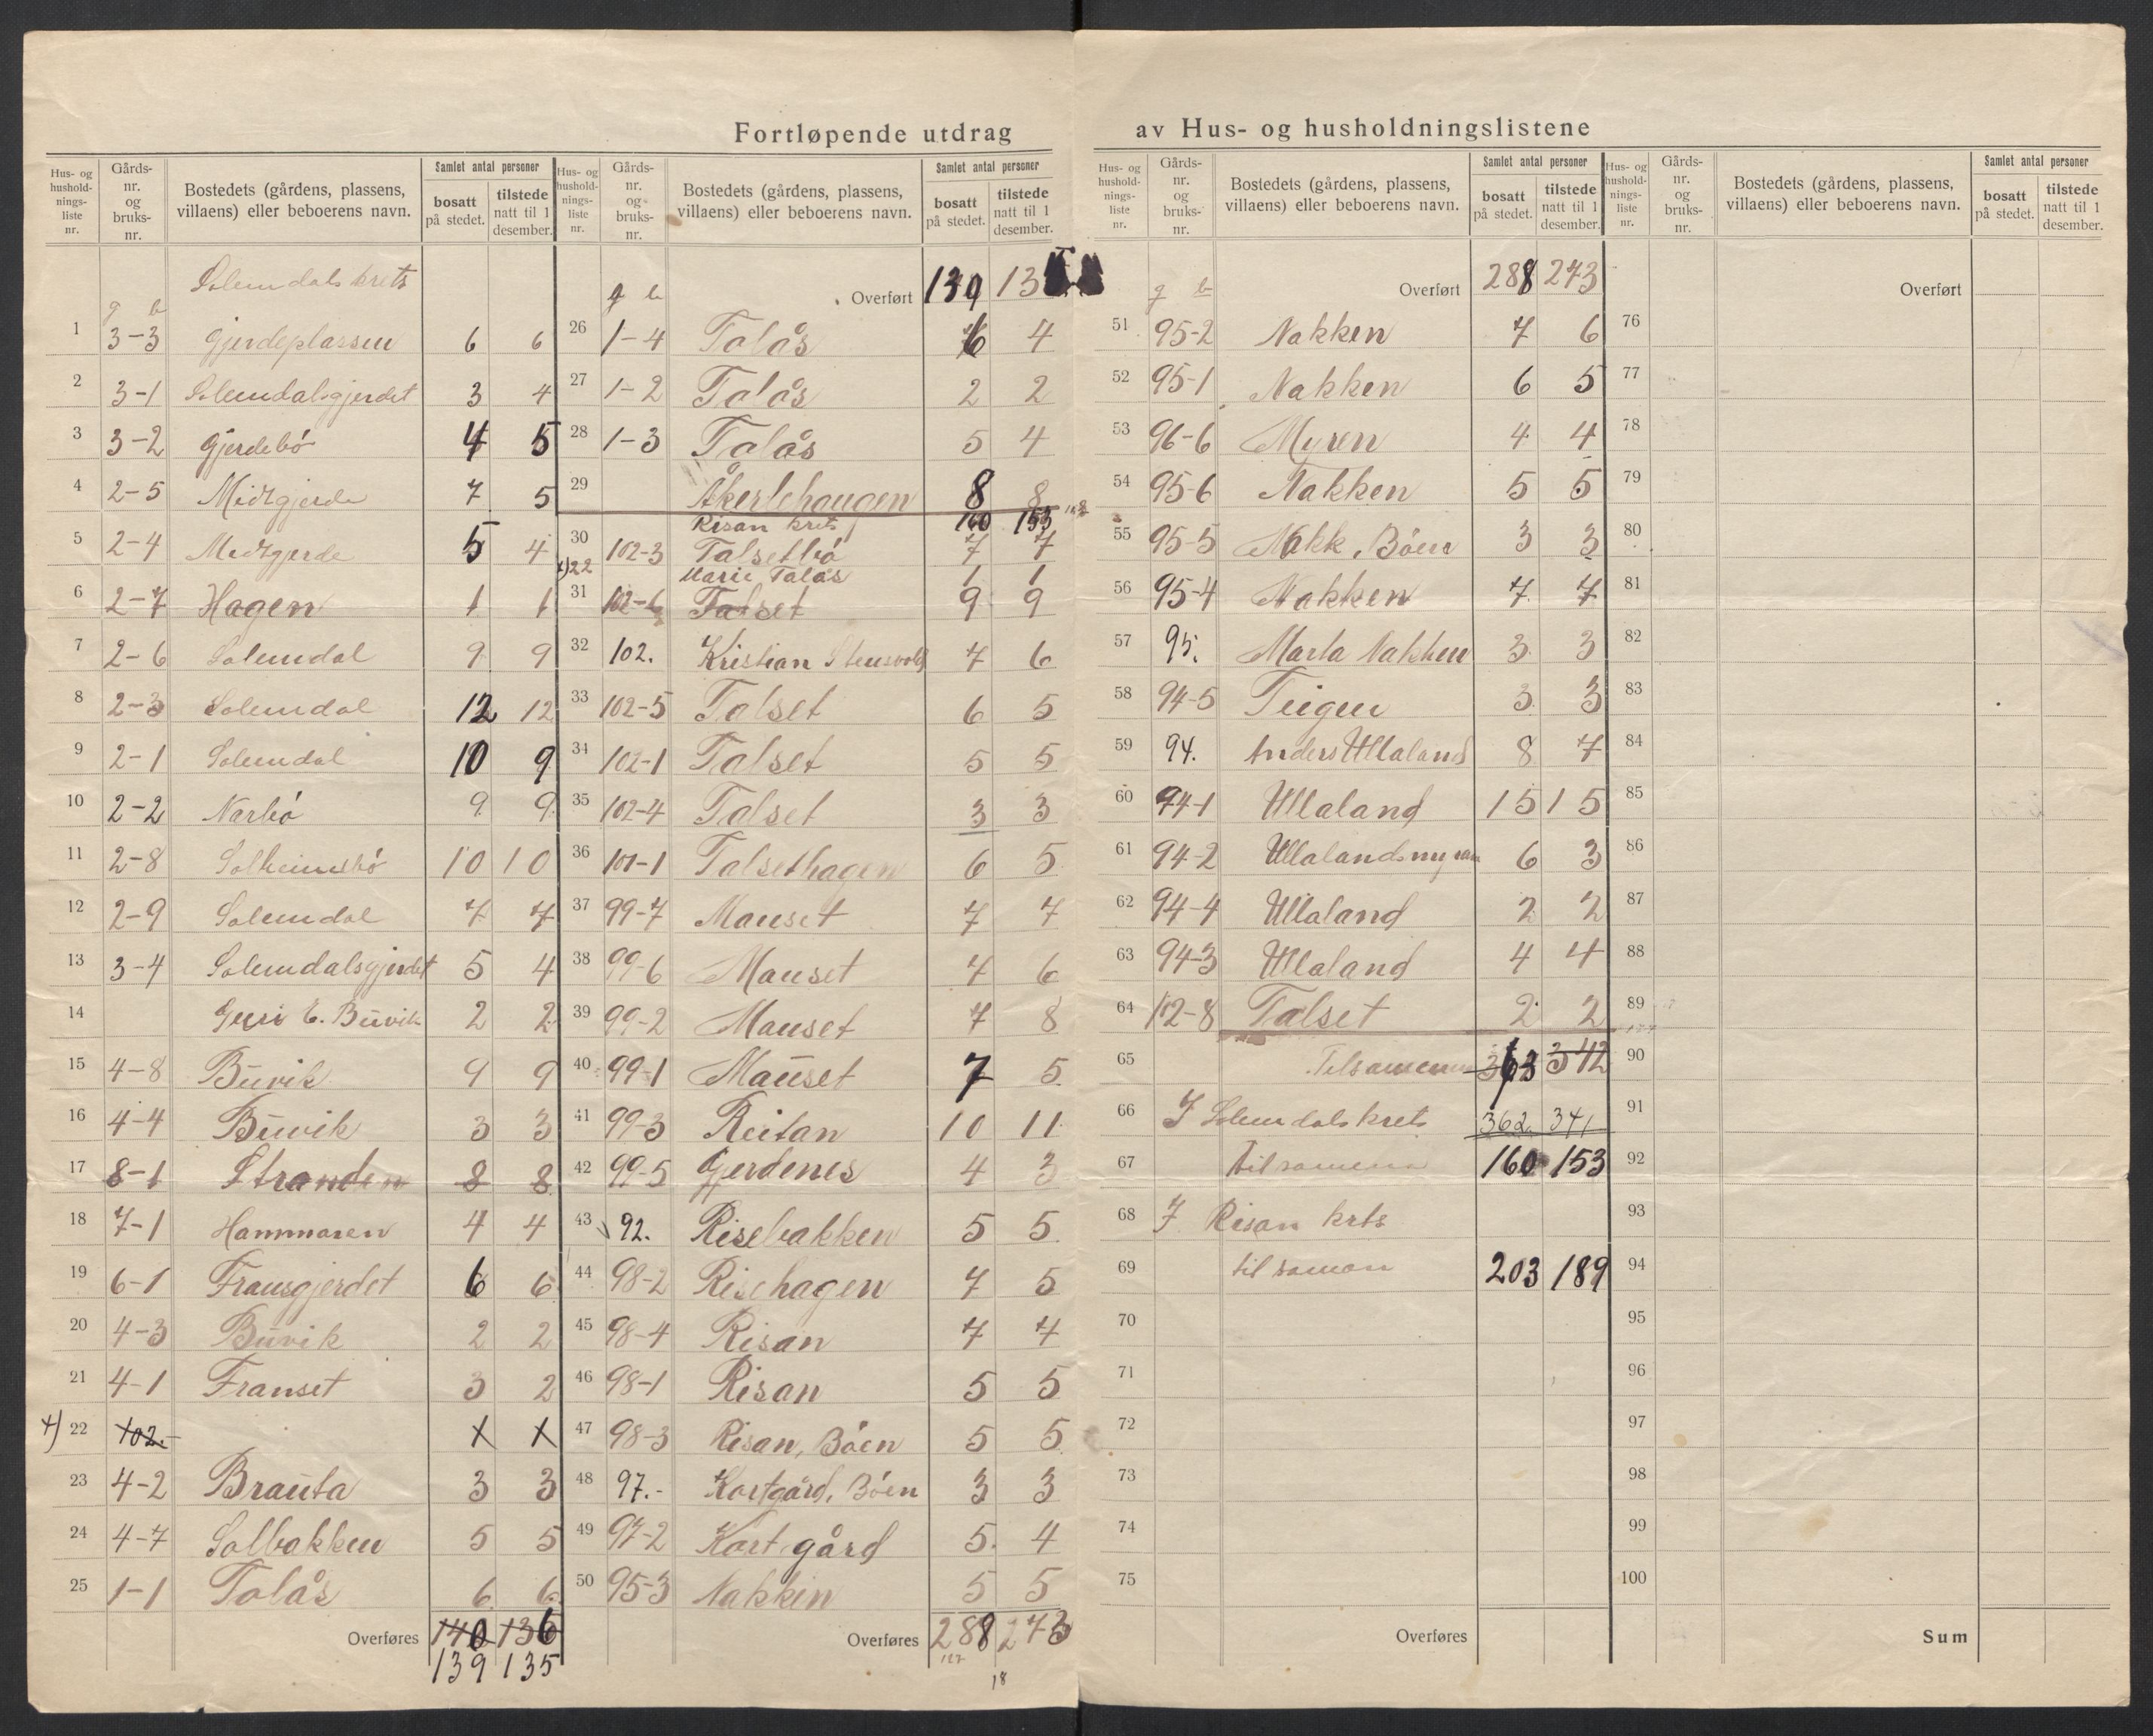 Fortløpende utdrag av Hus- og husholdningslistene
Hus- og hushold- nings- liste nr. Gårds- nr. og bruks- nr. Bostedets (gårdens, plassens, villaens) eller beboerens navn. Samlet antal personer bosatt på stedet. tilstede natt til 1 desember.
Solemdals krets
g b
1 3-3 Gjerdeplassen 6 6
2 3-1 Solemdalsgjerdet 3 4
3 3-2 Gjerdebó 4 5
4 2-5 Midtgjerde 7 5
5 2-4 Midtgjerde 5 4
6 2-7 Hagen 1 1
7 2-6 Solemdal 9 9
8 2-3 Solemdal 12 12
9 2-1 Solemdal 10 9
10 2-2 Narbó 9 9
11 2-8 Solheimsbó 10 10
12 2-9 Solemdal 7 7
13 3-4 Solemdalsgjerdet 5 4
14 Guri E. Buvik 2 2
15 4-8 Buvik 9 9
16 4-4 Buvik 3 3
17 8-1 Stranden 8 8
18 7-1 Hammaren 4 4
19 6-1 Fransgjerdet 6 6
20 4-3 Buvik 2 2
21 4-1 Franset 3 2
x) 22 102.- x x
23 4-2 Brauta 3 3
24 4-7 Solbakken 5 5
25 1-1 Talås 6 6
Overføres 140 136
139 135
Hus- og hushold- nings- liste nr. Gårds- nr. og bruks- nr. Bostedets (gårdens, plassens, villaens) eller beboerens navn. Samlet antal personer bosatt på stedet. tilstede natt til 1 desember.
g b Overført 139 13
26 1-4 Talås 6 4
27 1-2 Talås 2 2
28 1-3 Talås 5 4
29 Åkerlehaugen 8 8
Risan krets 160 153
30 102-3 Talsetbó 7 7
x)22 Marie Talås 1 1
31 102-6 Talset 9 9
32 102. Kristian Stensvold 7 6
33 102-5 Talset 6 5
34 102-1 Talset 5 5
35 102-4 Talset 3 3
36 101-1 Talsethagen 6 5
37 99-7 Mauset 7 7
38 99-6 Mauset 7 6
39 99-2 Mauset 7 8
40 99-1 Mauset 7 5
41 99-3 Reitan 10 11
42 99-5 Gjerdenes 4 3
43 92. Risebakken 5 5
44 98-2 Risehagen 7 5
45 98-4 Risan 7 7
46 98-1 Risan 5 5
47 98-3 Risan, Bóen 5 5
48 97.- Kortgård, Bóen 3 3
49 97-2 Kortgård 5 4
50 95-3 Nakken 5 5
Overføres 288 273
127
18
Hus- og hushold- nings- liste nr. Gårds- nr. og bruks- nr. Bostedets (gårdens, plassens, villaens) eller beboerens navn. Samlet antal personer bosatt på stedet. tilstede natt til 1 desember.
g b Overført 288 273
51 95-2 Nakken 7 6
52 95-1 Nakken 6 5
53 96-6 Myren 4 4
54 95-6 Nakken 5 5
55 95-5 Nakk, Bóen 3 3
56 95-4 Nakken 7 7
57 95. Marta Nakken 3 3
58 94-5 Teigen 3 3
59 94. Anders Ullaland 8 7
60 94-1 Ullaland 15 15
61 94-2 Ullalandsmyran 6 3
62 94-4 Ullaland 2 2
63 94-3 Ullaland 4 4
64 102-8 Talset 2 2
65 Tilsamen 363 342
66 I Solemdals krets 362 341
67 tilsamen 160 153
68 I Risan krets
69 tilsaman 203 189
70
71
72
73
74
75
Overføres
Hus- og hushold- nings- liste nr. Gårds- nr. og bruks- nr. Bostedets (gårdens, plassens, villaens) eller beboerens navn. Samlet antal personer bosatt på stedet. tilstede natt til 1 desember.
Overført
76
77
78
79
80
81
82
83
84
85
86
87
88
89
90
91
92
93
94
95
96
97
98
99
100
Sum